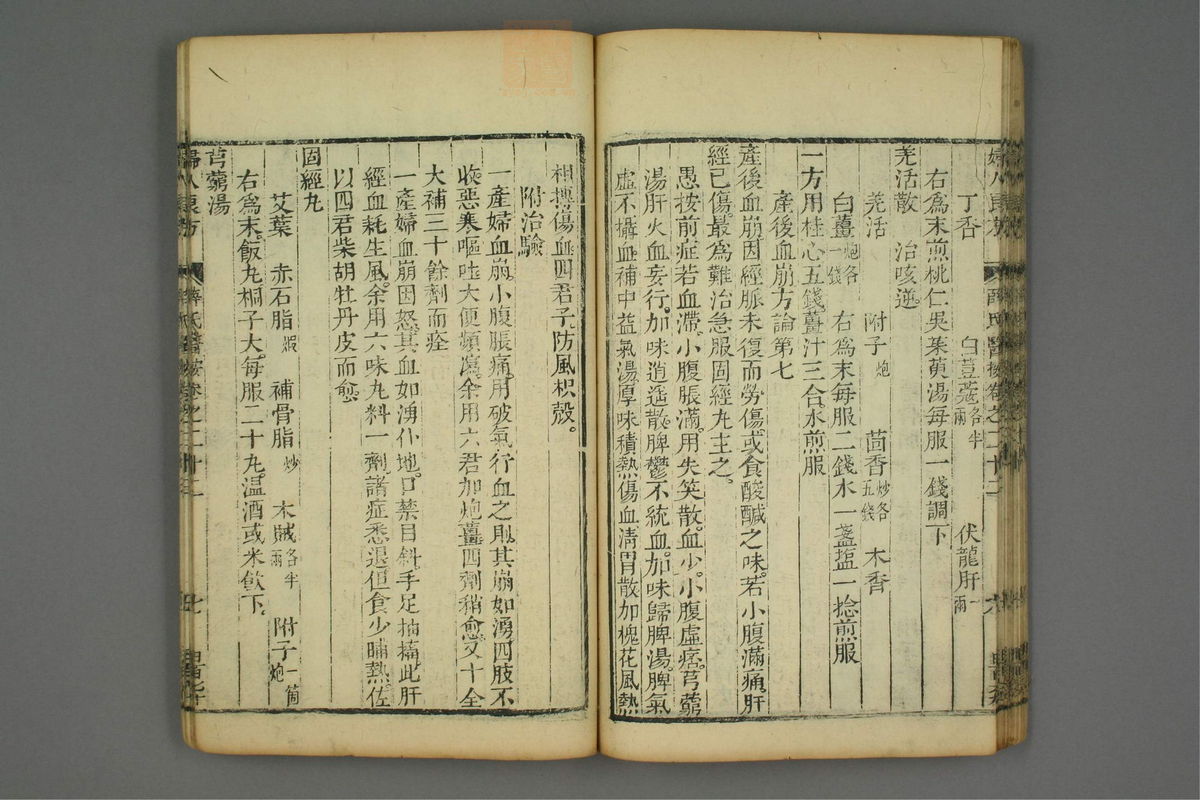 丁香　白荳蔻各半兩　伏龍肝一兩
右爲末煎桃仁吳茱萸湯每服一錢調下
羌活散　治咳逆。
羌活　附子炮　茴香炒各五錢　木香
白薑炮各一錢　右爲末每服二錢水一盞塩一捻煎服
一方用桂心五錢薑汁三合水煎服
產後血崩方論第七
產後血崩因經脈未復而勞傷或食酸鹹之味。若小腹滿痛。肝
經已傷。最爲難治急服固經丸主之。
愚按前症若血滯。小腹脹滿。用失笑散。血少。小腹虛痞。芎藭
湯肝火血妄行。加味逍遥散。脾鬱不統血。加味歸脾湯。脾氣
虛不攝血補中益氣湯。厚味積熱傷血淸胃散加槐花風熱
相搏傷血四君子防風枳殼。
附治驗
一產婦血崩。小腹脹痛。用破氣行血之劑。其崩如湧。四肢不
收。惡寒嘔吐。大便頻瀉。余用六君加炮薑四劑稍愈。又十全
大補三十餘劑而痊
一產婦血崩因怒。其血如湧仆地。口禁目斜。手足搐搦。此肝
經血耗生風。余用六味丸料一劑。諸症悉退。但食少晡熱。佐
以四君柴胡牡丹皮而愈。
固經丸
艾葉　赤石脂煆　補骨脂炒　木賊各半兩　附子一箇炮
右爲末。飯丸桐子大。每服二十丸。温酒或米飲下。
芎藭湯
婦人良方　薛氏醫按卷之二十二